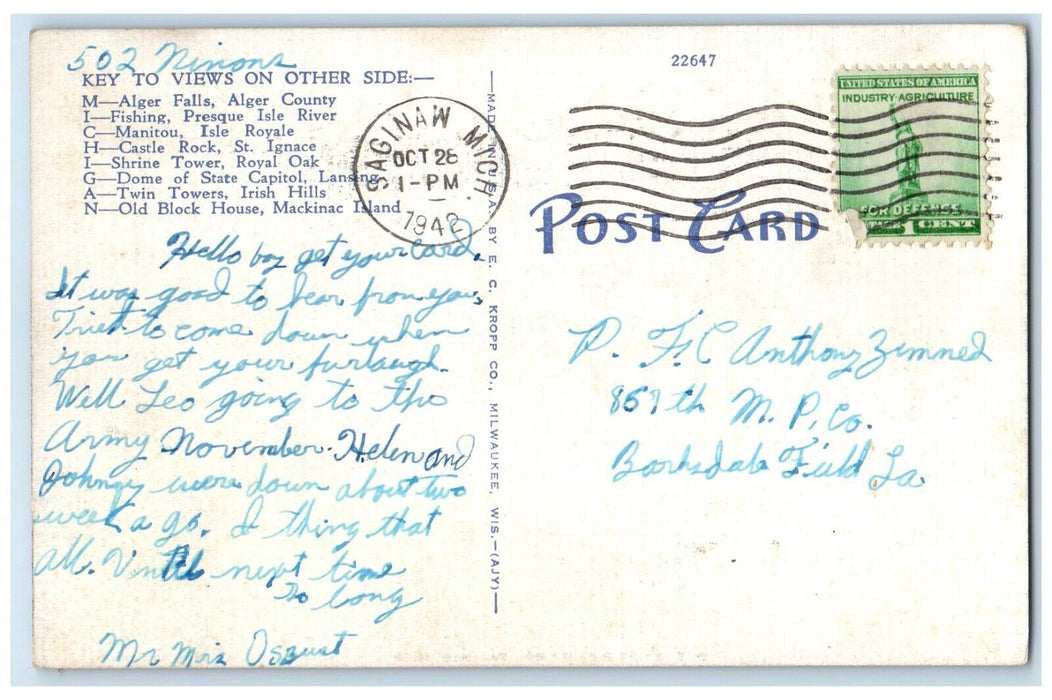 502 Ninons
KEY TO VIEWS ON OTHER SIDE:—
M—Alger Falls, Alger County
I—Fishing, Presque Isle River
C—Manitou, Isle Royale
H—Castle Rock, St. Ignace
I—Shrine Tower, Royal Oak
G—Dome of State Capitol, Lansing
A—Twin Towers, Irish Hills
N—Old Block House, Mackinac Island
Hello boy get your card.
It was good to hear from you,
Triet to come down when
you get your furlaugh.
Well Leo going to the
Army November. Helen and
Johnny were down about two
week a go. I thing that
All. Until next time
So long
Mr Mrs
MADE IN U.S.A. BY E. C. KROPP CO., MILWAUKEE, WIS.—(AJY)—
SAGINAW MICH.
OCT 28
1-PM
1942
22647
UNITED STATES OF AMERICA
INDUSTRY·AGRICULTURE
FOR DEFENSE
1 CENT
POST CARD
P. F. C Anthony Zimned
867th M. P. Co.
Barksdale Field La.